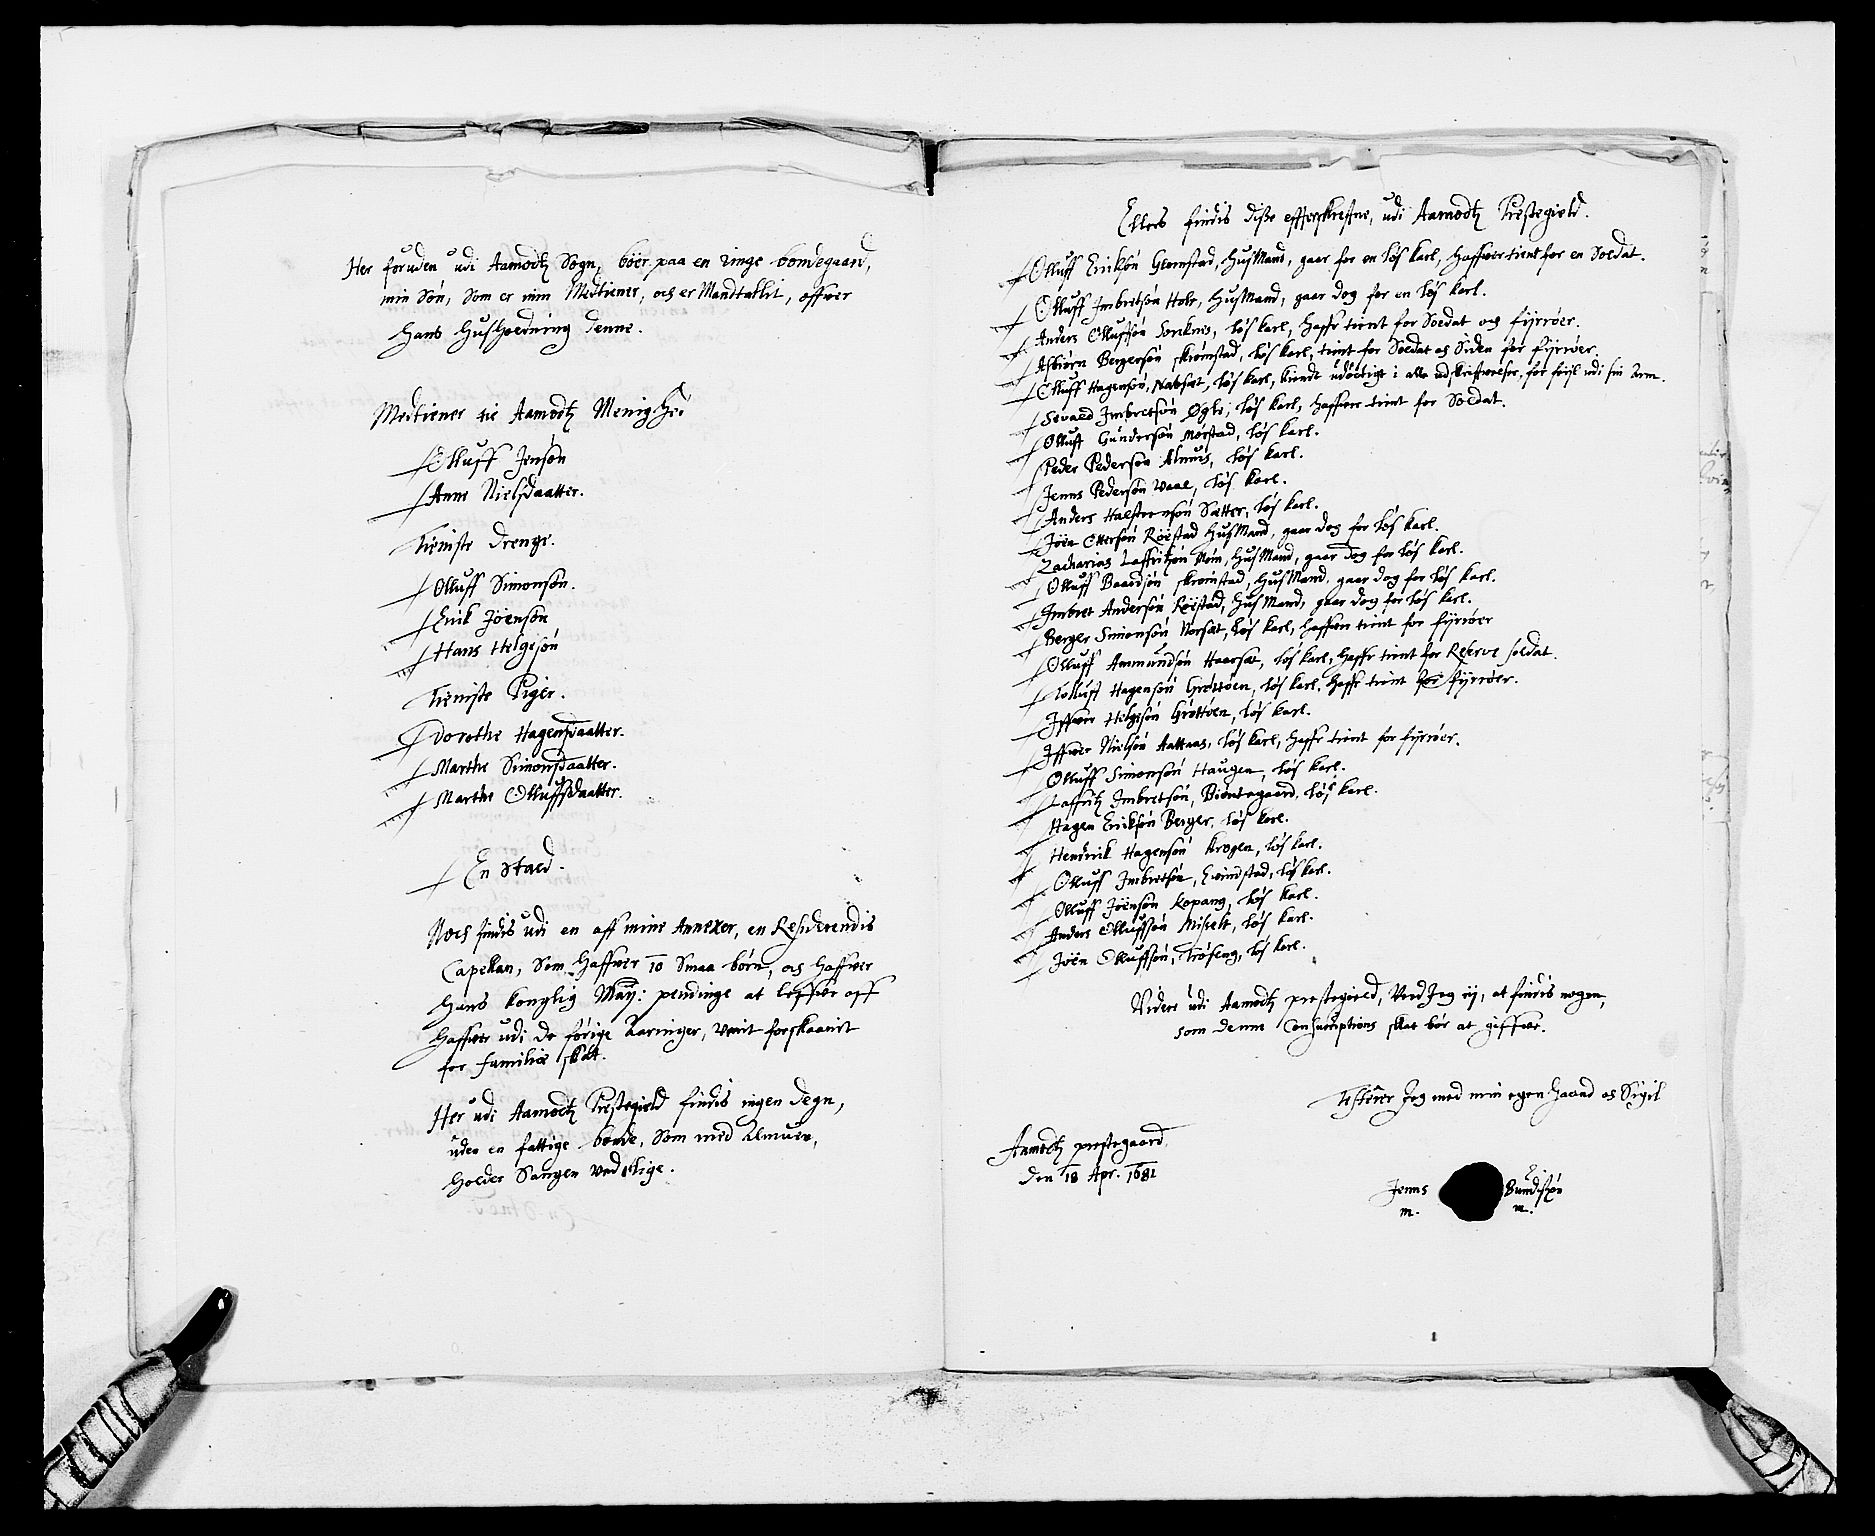 Her foruden udi Aamodtz Sogn, böer paa en ringe bondegaard,
min Sön, Som er min Medtiener, och er Mandtallit, offver
Hans Husholdning denne.
Medtiener til Aamodtz Menighed
Olluff Jensön
Anne Nielsdaatter.
Tieniste drenge.
Olluff Simonsön.
Erik Jöensön
Hans Helgesön
Tieniste Piger.
Dorothe Hagensdaatter.
Marthe Simonsdaatter.
Marthe Olluffsdaatter.
En Stald.
Noch findis udi en aff mine Annexer, en Residerendis
Capellan, Som Haffver 10 Smaa börn, och Haffver
Hans konglig May: pendinge at leffve aff
Haffver udi de förige Aaringer, verit forskaanit
for familie skat.
Her udi Aamodtz Prestegield findis ingen Degn,
uden en fattige bonde, Som med Almuen,
Holder Sangen ved lige.
Ellers findis disse effterskrefne, udi Aamodtz Prestegield.
Olluff Eriksön Glomstad, HusMand, gaar for en lös karl, Haffver tient for en Soldat.
Olluff Imbretsön Hole, HusMand, gaar dog for en lös karl.
Anders Olluffsön, lös karl, Haffr tient for Soldat och fyrröer.
Asbiörn Bergersön Skramstad, lös karl, tient for Soldat och Siden for fyrröer.
Olluff Hagensön, Nabset, lös karl, kiendt udöctige i alle udskriffvelser, for feyl udi sin Arm.
Sevald Imbretsön Ögle, lös karl, Haffver tient for Soldat.
Olluff Gundersön Mörstad, lös karl.
Peder Pedersön Alnæs, lös karl.
Jenns Pedersön Vaal, lös karl.
Anders Halstensön Sætter, lös karl.
Jöen Ottersön Röestad HusMand, gaar dog for lös karl.
Zacharias Laffritzön Moen, HusMand, gaar dog for lös karl.
Olluff Baardsön Skramstad, HusMand, gaar dog for lös karl.
Imbret Andersön Röestad, HusMand, gaar dog for lös karl.
Berger Simonsön Norset, lös karl, Haffver tient for fyrröer
Olluff Ammundsön Haarset, lös karl, Haffr tient for Reserve soldat.
Tolluff Hagensön Gröttöen, lös karl, Haffr tient for fyrröer.
Iffver Helgesön Gröttöen, lös karl.
Iffver Nielsön Aattaas, lös karl, Haffr tient for fyrröer.
Olluff Simonsön Haugen, lös karl.
Laffritz Imbretsön, Biöntegaard, lös karl.
Hagen Eriksön Berger, lös karl.
Hendrik Hagensön Krogen, lös karl.
Olluff Imbretsön, Evindstad, lös karl.
Olluff Jöensön Kopang, lös karl.
Anders Olluffsön Misselt, lös karl.
Jöen Olluffsön, Tröseng, lös karl.
Videre udi Aamodtz prestegield, Ved Jeg ey, at findis nogen,
som denne Consumptions skat bör at giffve.
Testerer Jeg med min egen Haand och Sigil
Aamodtz prestegaard,
den 18 Apr. 1682
Jenns Bundesön
m. m.